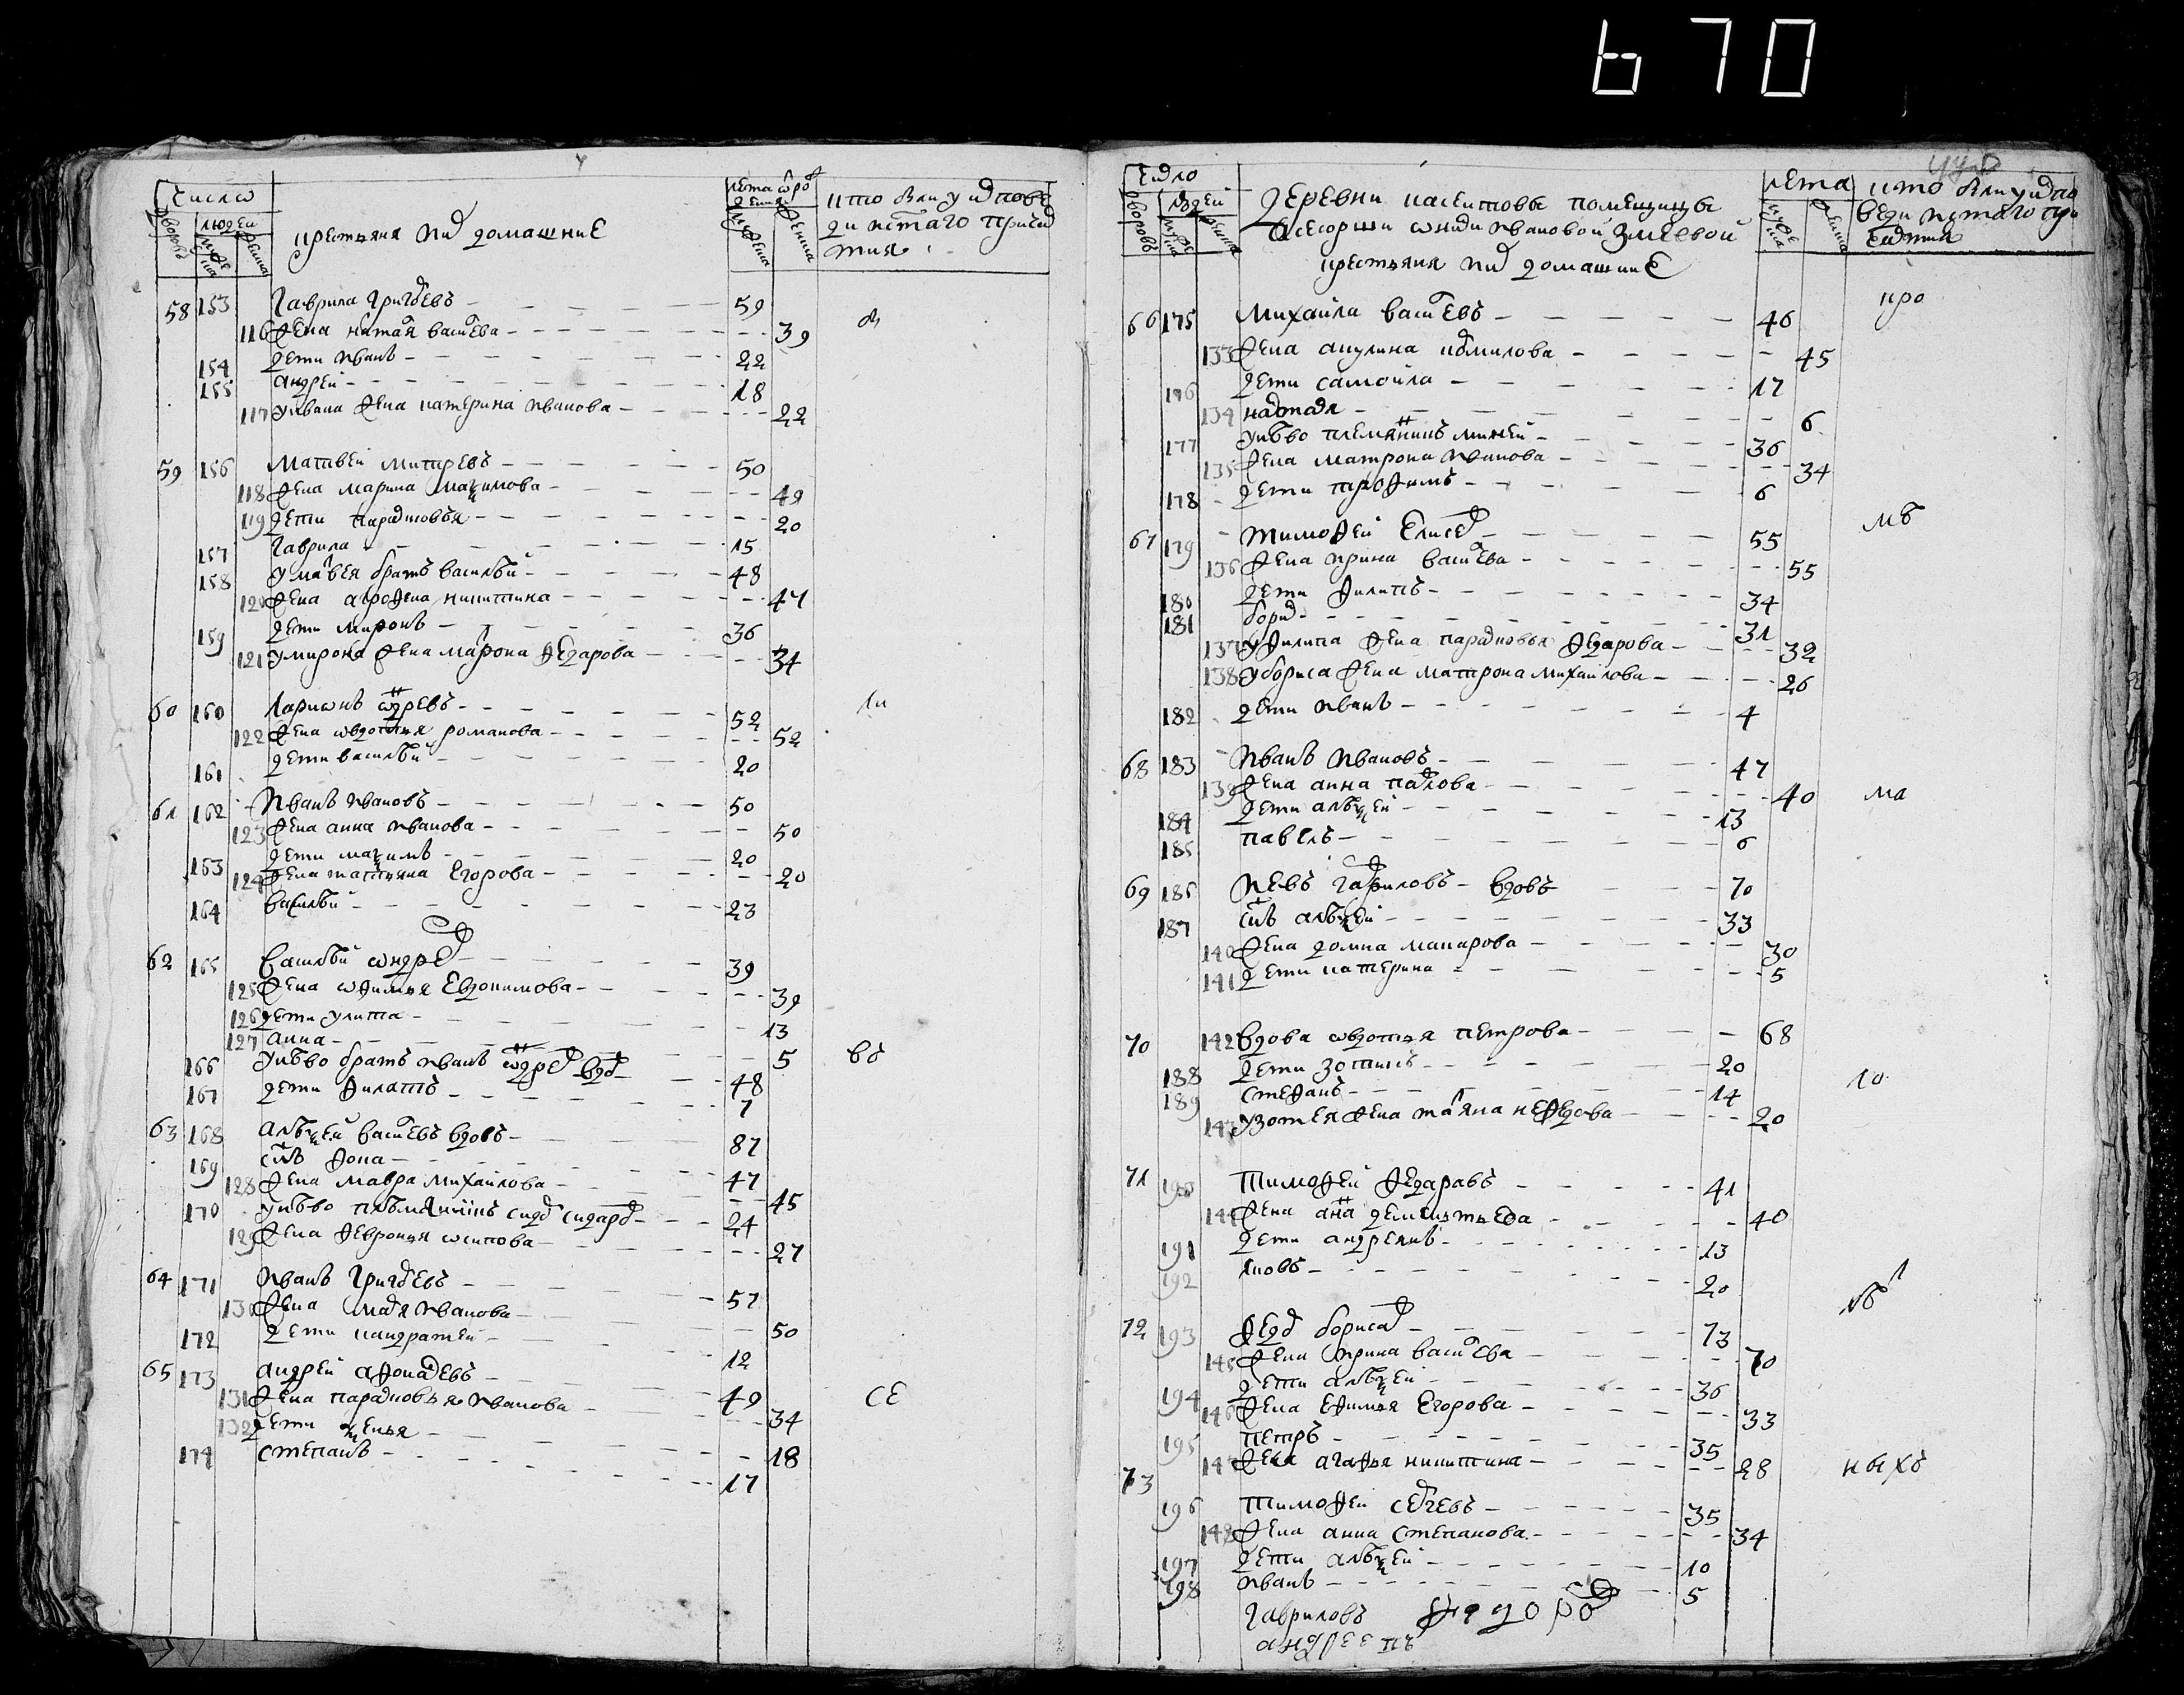 670
Число
крестьяня и их домашние
лета от рождения
кто был у исповеди и святаго причастия
дворовъ
людей
мужеска
женска
мужеска
женска
58 153 Гаврила Григоревъ 59
116 жена наталья василева 39
154 дети иванъ 22
155 андрей 18
117 у ивана жена катерина иванова 22
59 156 матвей митревъ 50
118 жена марина максимова 49
119 дети парасковья 20
157 гаврила 15
158 у матвея братъ василѣй 48
120 жена агрофена никитина 47
159 дети миронъ 36
121 у мирона жена матрона федарова 34
60 160 ларионъ андревъ 52
122 жена овдотья романова 52
161 дети василѣй 20
61 162 иванъ ивановъ 50
123 жена анна иванова 50
163 дети максимъ 20
124 жена татьяна Егорова 20
164 василѣй 23
62 165 василѣй ондрев 39
125 жена офимья Евдокимова 39
126 дети улита 13
127 анна 5
166 у него братъ иванъ андрев вдов 48
167 дети филатъ 7
63 168 алѣксей василевъ вдовъ 87
169 снъ фока 47
128 жена мавра михайлова 45
170 у него плѣмянникъ сидор сидаров 24
129 жена февронья осипова 27
64 171 иванъ Григоревъ 57
130 жена марья иванова 50
172 дети кандратей 12
65 173 андрей афонасевъ 49
131 жена парасковья иванова 34
132 дети ксенья 18
174 степанъ 17
ли
во
се
Число
деревни
помещицы
ивановой Змеевой
крестьяня и их домашние
лета
кто был у исповеди и святаго причастия
дворовъ
людей
мужеска
женска
мужеска
женска
66 175 михайла василевъ 46
133 жена акулина кормилова 45
176 дети самойла 17
134 настася 6
177 у него племянникъ михей 36
135 жена матрона иванова 34
178 дети трофимъ 6
67 179 тимофей Елисев 55
136 жена ирина василева 55
180 дети филипъ 34
181 борис 31
137 у филипа жена парасковья федарова 32
138 у бориса жена матрона михайлова 26
182 дети иванъ 4
68 183 иванъ ивановъ 47
139 жена анна павлова 40
184 дети алѣксей 13
185 павелъ 6
69 186 иевъ гавриловъ вдовъ 70
187 снъ алѣксей 33
140 жена домна макарова 30
141 дети катерина 5
70 142 вдова овдотья петрова 68
188 дети зотикъ 20
189 стефанъ 14
143 у зотея жена татьяна нефедова 20
71 190 тимофей федаравъ 41
144 жена анна дементьева 40
191 дети андреянъ 13
192 яковъ 20
72 193 федор борисав 73
145 жена ирина василева 70
194 дети алѣксей 36
146 жена Ефимья Егорова 33
195 петръ 35
147 жена агафья никитина 28
73 196 тимофей сергевъ 35
148 жена анна степанова 34
197 дети алѣксей 10
198 иванъ 5
про
мо
ма
ло
ныхъ
гавриловъ федоров
андреевъ